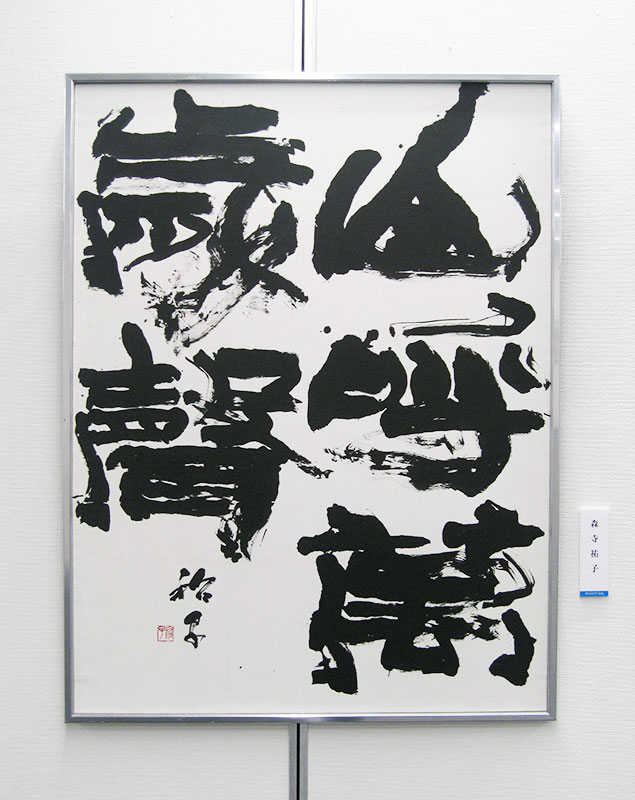 山呼萬
歳聲
祐子
森寺祐子